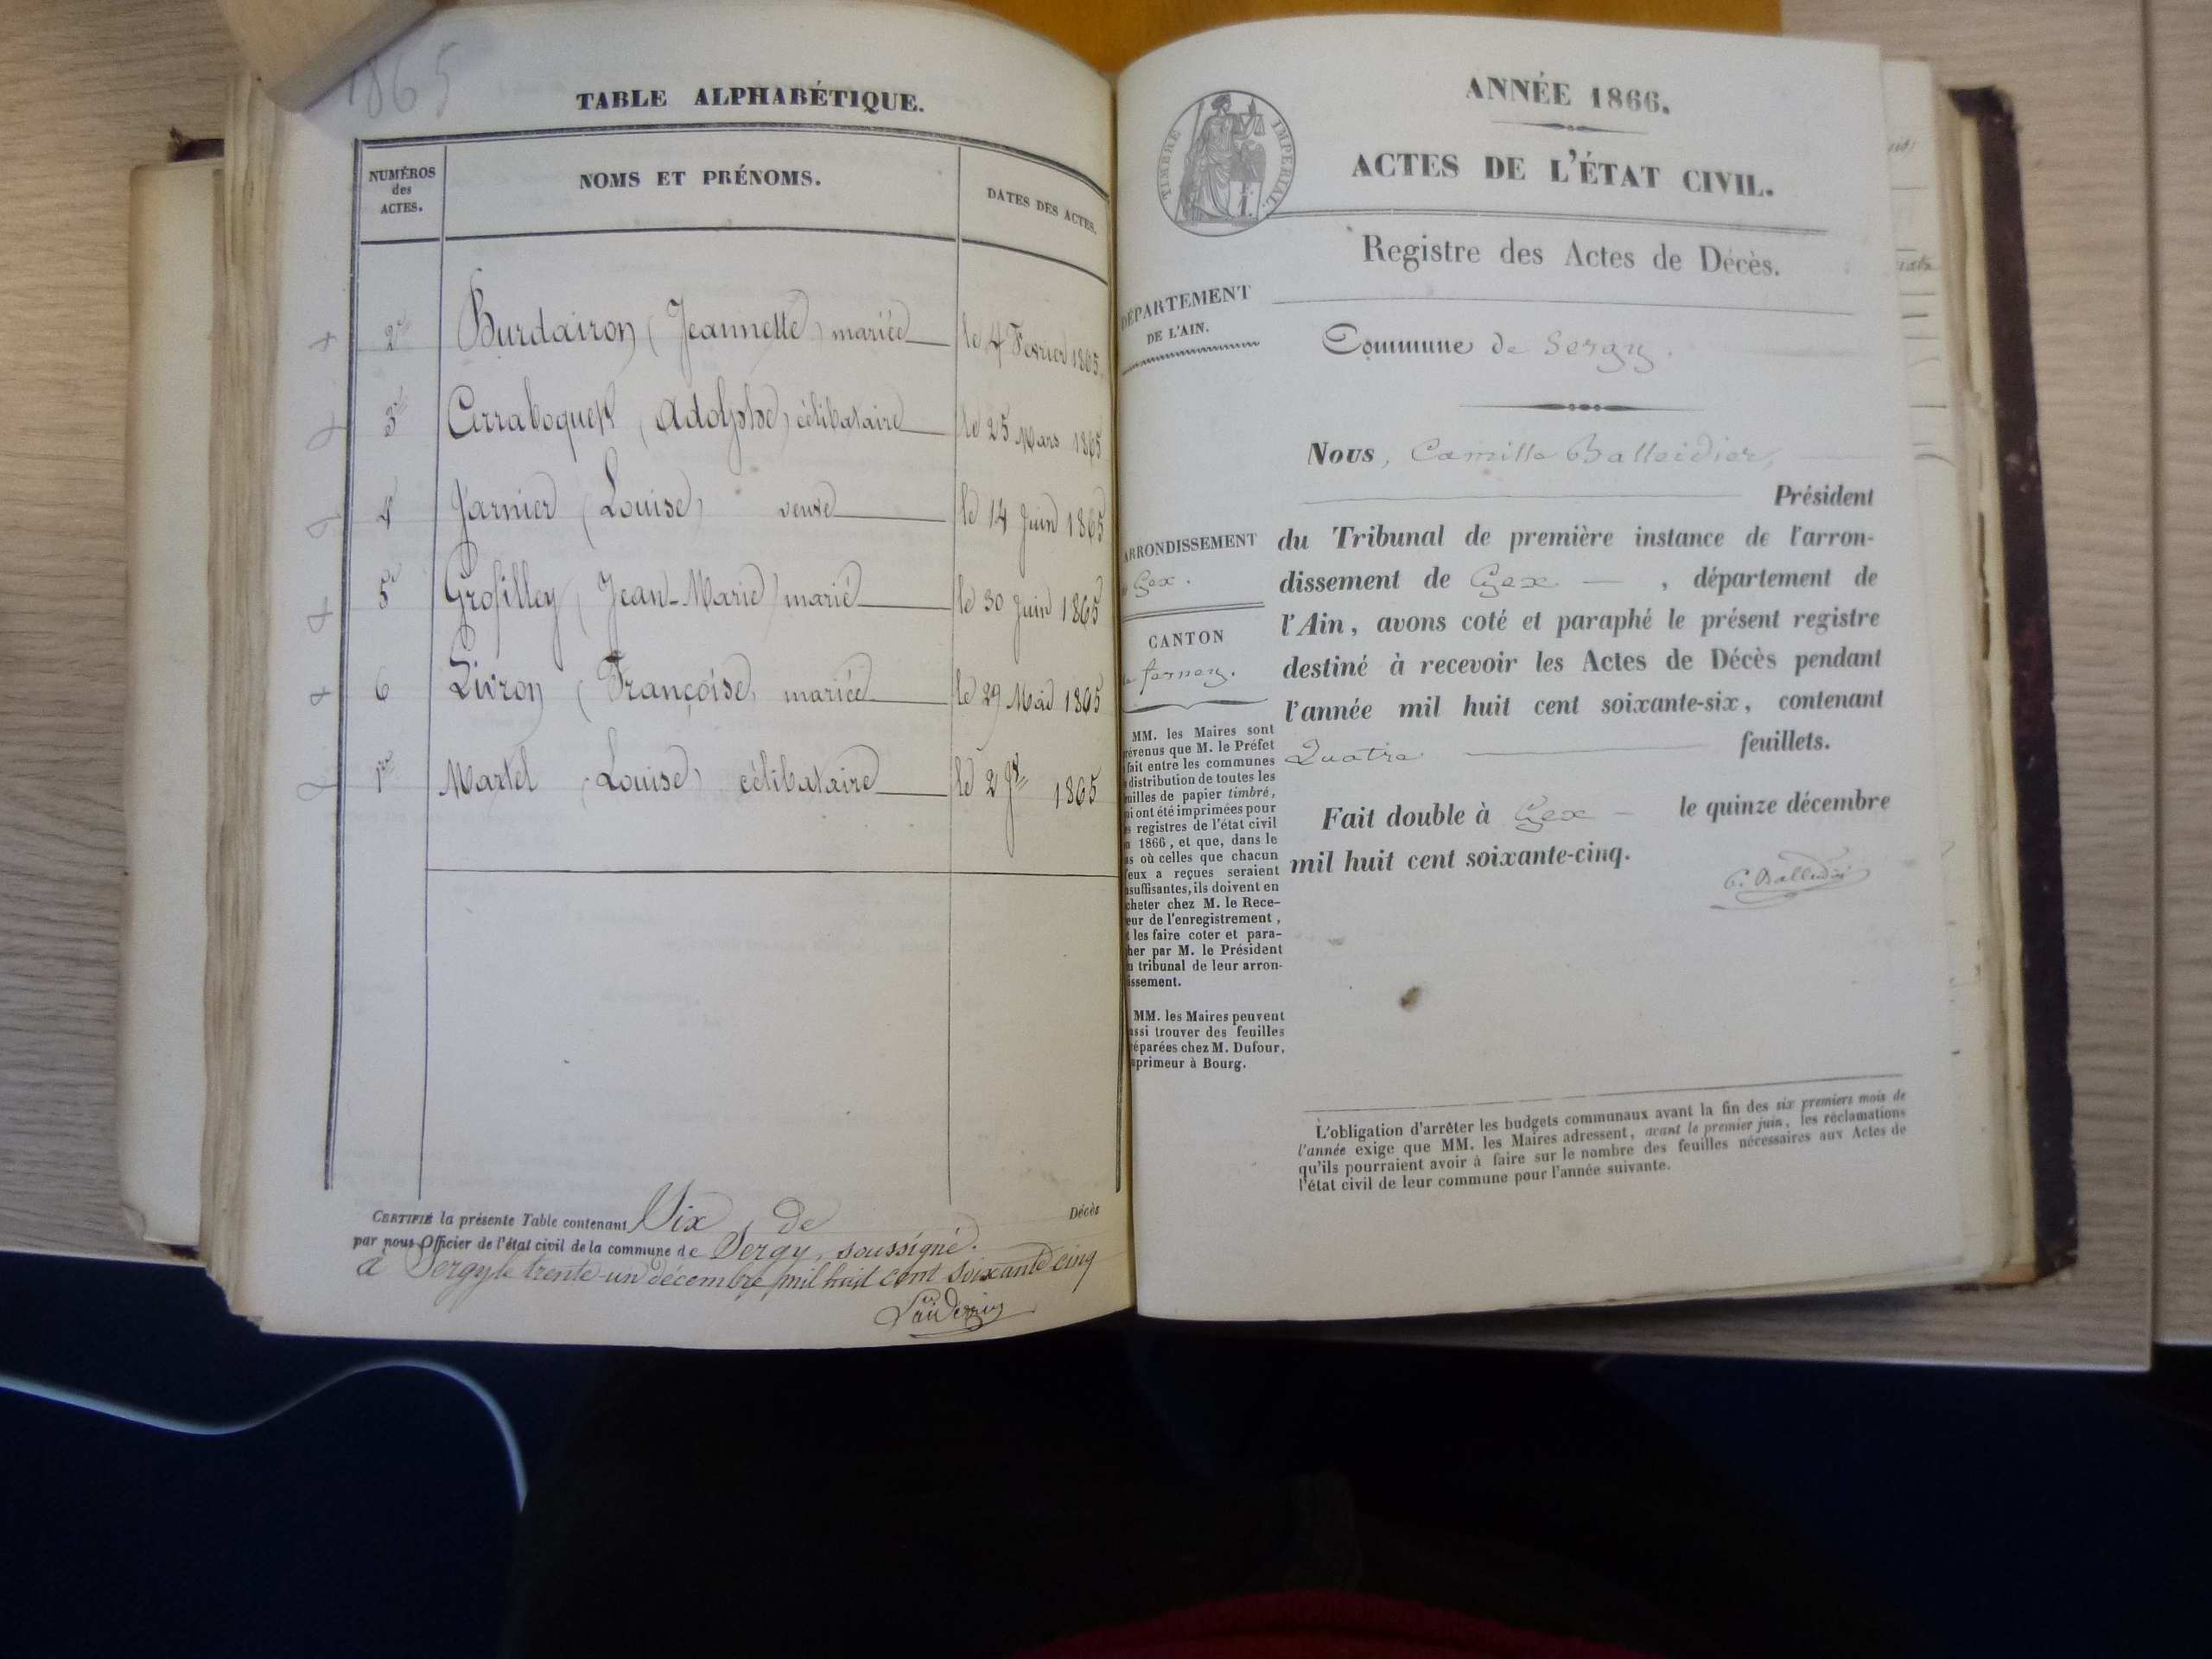 1865
TABLE ALPHABÉTIQUE.
NUMÉROS
des
ACTES.
NOMS ET PRÉNOMS.
DATES DES ACTES.
2 Burdairon (Jeannette) mariée le 4 Fevrier 1865
3 (Adolphe) célibataire le 25 Mars 1865
4 Garnier (Louise) veuve le 14 Juin 1865
5 Grosilley (Jean-Marie) marié le 30 Juin 1865
6 Livron (Françoise) mariée le 29 Mai 1865
1er Martel (Louise) célibataire le 2 1865
CERTIFIÉ la présente Table contenant Six de Décès
par nous Officier de l'état civil de la commune de Sergy, soussigné.
à Sergy le trente-un décembre mil huit cent soixante cinq
TIMBRE IMPERIAL.
ANNÉE 1866.
ACTES DE L'ÉTAT CIVIL.
Registre des Actes de Décès.
DÉPARTEMENT
DE L'AIN.
Commune de Sergy.
Nous, Camille Balleidier,
Président
ARRONDISSEMENT
Gex.
CANTON
fernex.
du Tribunal de première instance de l'arron-
dissement de Gex — , département de
l'Ain, avons coté et paraphé le présent registre
destiné à recevoir les Actes de Décès pendant
l'année mil huit cent soixante-six, contenant
Quatre feuillets.
Fait double à Gex — le quinze décembre
mil huit cent soixante-cinq.
C. Balleidier
MM. les Maires sont
révenus que M. le Préfet
fait entre les communes
distribution de toutes les
uilles de papier timbré,
ui ont été imprimées pour
s registres de l'état civil
n 1866, et que, dans le
as où celles que chacun
eux a reçues seraient
nsuffisantes, ils doivent en
cheter chez M. le Rece-
eur de l'enregistrement,
les faire coter et para-
her par M. le Président
u tribunal de leur arron-
issement.
MM. les Maires peuvent
ussi trouver des feuilles
réparées chez M. Dufour,
mprimeur à Bourg.
L'obligation d'arrêter les budgets communaux avant la fin des six premiers mois de
l'année exige que MM. les Maires adressent, avant le premier juin, les réclamations
qu'ils pourraient avoir à faire sur le nombre des feuilles nécessaires aux Actes de
l'état civil de leur commune pour l'année suivante.